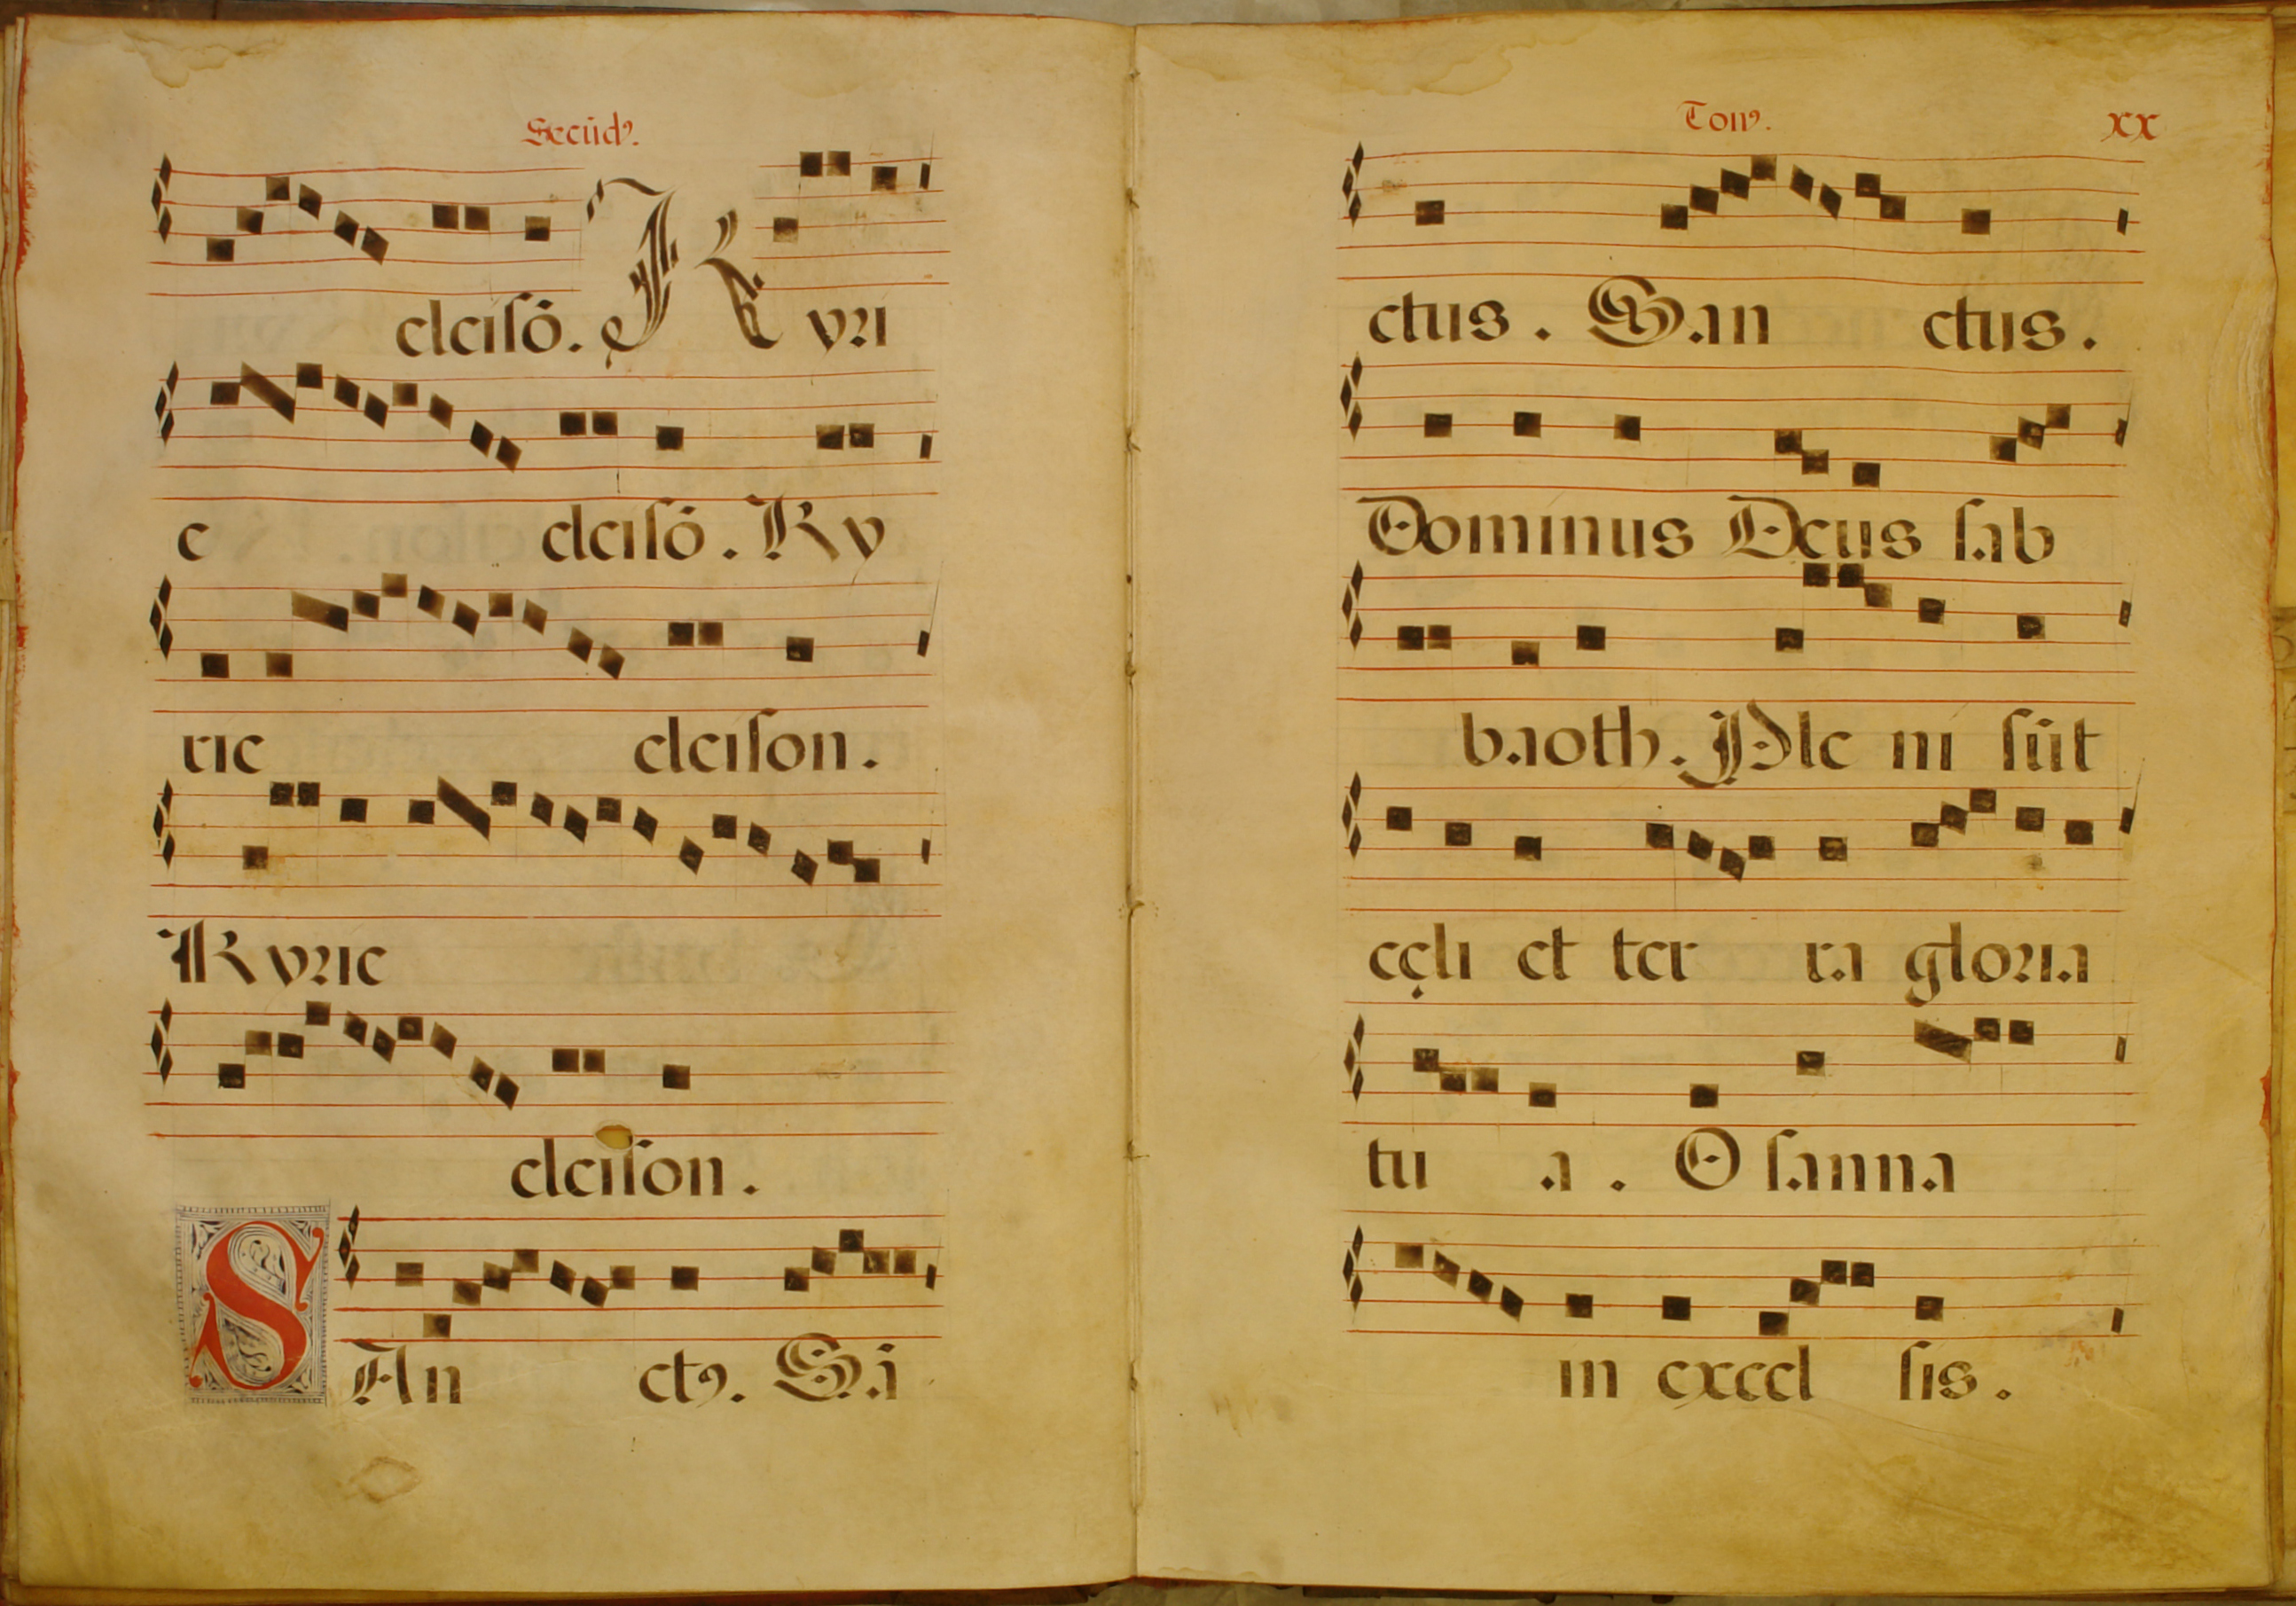 Secūdꝰ.
eleiſō. Kyri
e eleiſō. Ky
rie eleiſon.
Kyrie
eleiſon.
SAn ctꝰ. Sā
Tonꝰ. xx
ctus. San ctus.
Dominus Deus ſab
baoth. Ple ni ſūt
cęli et ter ra gloria
tu a. O ſanna
in excel ſis.